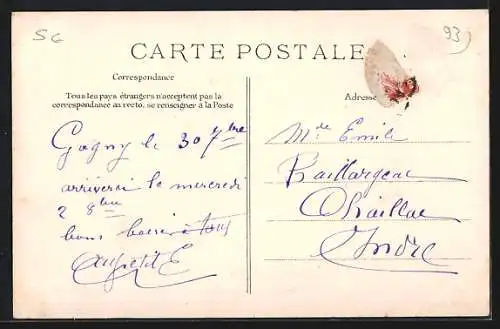 SG
93
CARTE POSTALE
Correspondance
Tous les pays étrangers n'acceptent pas la
correspondance au recto, se renseigner à la Poste
Adresse
Gagny le 30 7bre
arriverai le mercredi
2 8bre
bons baisers à tous
Mde Emile
Baillargeau
Chaillac
Indre